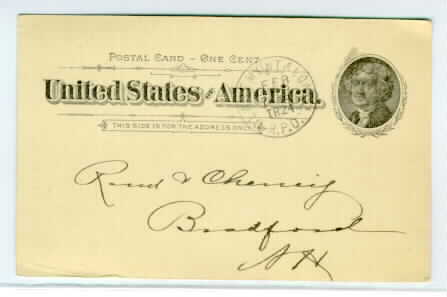 POSTAL CARD - ONE CENT.
United States of America.
THIS SIDE IS FOR THE ADDRESS ONLY.
FEB
R.P.O.
Bradford
NH